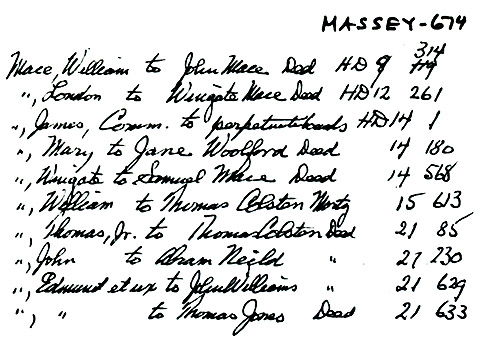 MASSEY-674
314
Mace, William to John Mace Deed HD 9 119
", London to Wingate Mace Deed HD 12 261
", James, Comm. to perpetuate bounds HD 14 1
", Mary to Jane Woolford Deed 14 180
", Wingate to Samuel Mace Deed 14 568
", William to Thomas Colston Mortg 15 613
", Thomas, Jr. to Thomas Colston Deed 21 85
", John to Abram Neild " 27 230
", Edmund et ux to John Williams " 21 629
", " to Thomas Jones Deed 21 633